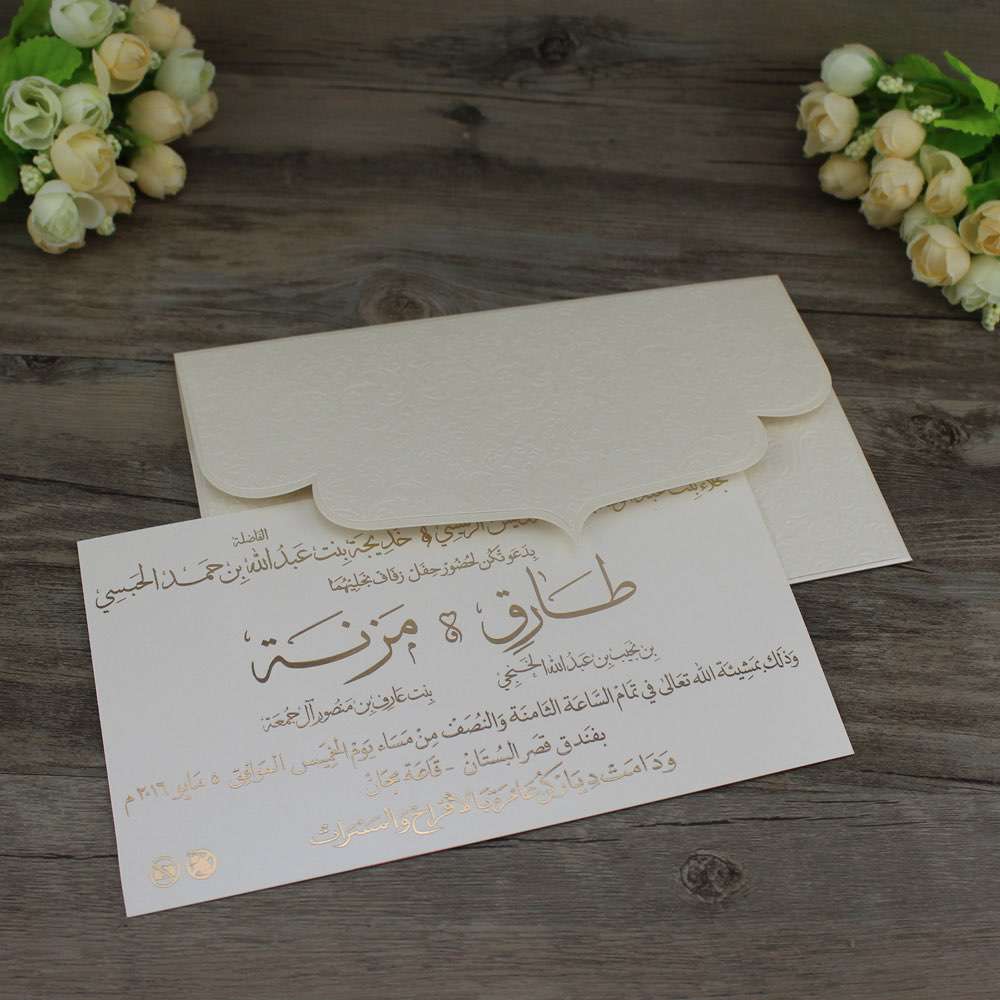 نجلاء بنت عبدالله
الفاضلة
خديجة بنت عبدالله بن حمد الحبسي
بدعوتكن لحضور حفل زفاف نجليهما
طارق & مزنة
بن نجيب بن عبدالله الخنجي
بنت عارف بن منصور آل جمعة
وذلك بمشيئة الله تعالى في تمام الساعة الثامنة والنصف من مساء يوم الخميس الموافق ٥ مايو ٢٠١٦م
بفندق قصر البستان - قاعة عمان
ودامت دياركم عامرة بالأفراح والمسرات